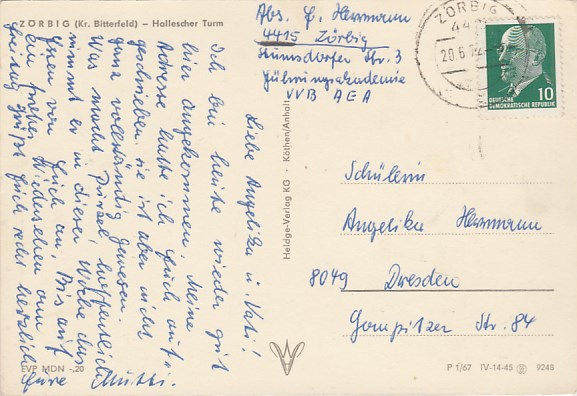 ZÖRBIG (Kr. Bitterfeld) – Hallescher Turm
Liebe Angelika u. Vati!
Ich bin heute wieder gut
hier angekommen. Meine
Adresse hatte ich Euch auf-
geschrieben. sie ist aber nicht
ganz vollständig gewesen.
Was macht Purzel, hoffentlich
nimmt er in dieser Woche das
von Euch an. Bis auf
ein frohes Wiedersehen am
Freitag grüßt Euch recht herzlich
Eure Mutti.
EVP MDN -,20
Heldge-Verlag KG · Köthen/Anhalt
Abs. E. Herrmann
4415 Zörbig
Str. 3
Führungsakademie
VVB AEA
ZÖRBIG
44
20.6.72
DEUTSCHE
DEMOKRATISCHE REPUBLIK
10
Schülerin
Angelika Herrmann
8049 Dresden
Gompitzer Str. 84
P 1/67 IV-14-45 9248